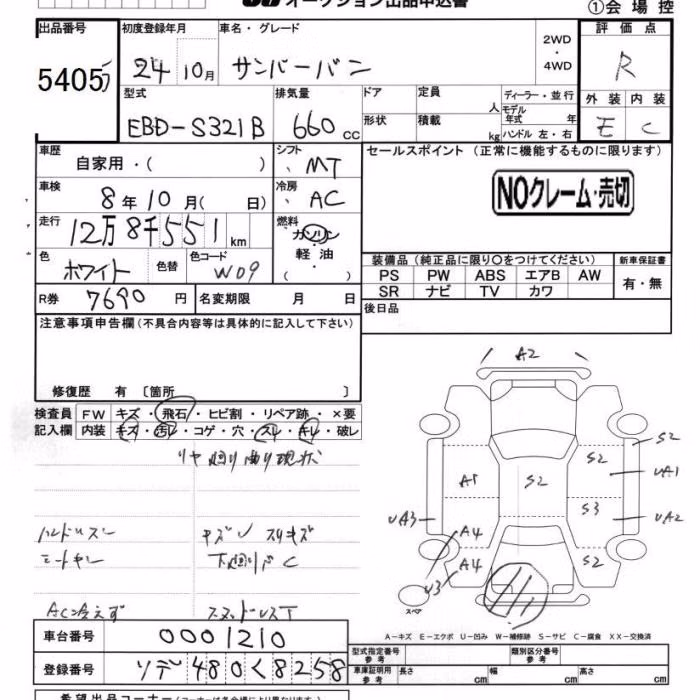 オークション出品申込書
①会場控
出品番号 初度登録年月 車名・グレード 2WD・4WD 評価点
5405 24 10月 サンバーバン R
型式 排気量 ドア 定員 人 ディーラー・並行 外装 内装
EBD-S321B 660 cc 形状 積載 kg モデル年式 年 ハンドル 左・右 E C
車歴 自家用・( ) シフト MT セールスポイント (正常に機能するものに限ります)
車検 8年10月( 日) 冷房 AC NOクレーム・売切
走行 12万8千551 km 燃料 ガソリン 軽油 ( )
色 ホワイト 色替 色コード W09
装備品(純正品に限り○をつけてください) 新車保証書
PS PW ABS エアB AW 有・無
SR ナビ TV カワ
R券 7690 円 名変期限 月 日 後日品
注意事項申告欄(不具合内容等は具体的に記入して下さい)
修復歴 有 〔箇所 〕
検査員 FW キズ・飛石・ヒビ割・リペア跡・×要
記入欄 内装 キズ・汚レ・コゲ・穴・スレ・キレ・破レ
リヤ廻り曲り現状
キズ スリキズ
下廻りサビC
AC冷えず スタッドレスT
A2
S2
A1 S2 S2 UA1
UA3 S3 UA2
A4
A4 S2
U3
スペア
A－キズ E－エクボ U－凹み W－補修跡 S－サビ C－腐食 XX－交換済
車台番号 0001210
型式指定番号 参考 類別区分番号 参考
登録番号 ソデ480く8258
車庫証明用 参考 長さ cm 幅 cm 高さ cm
希望出品コーナー